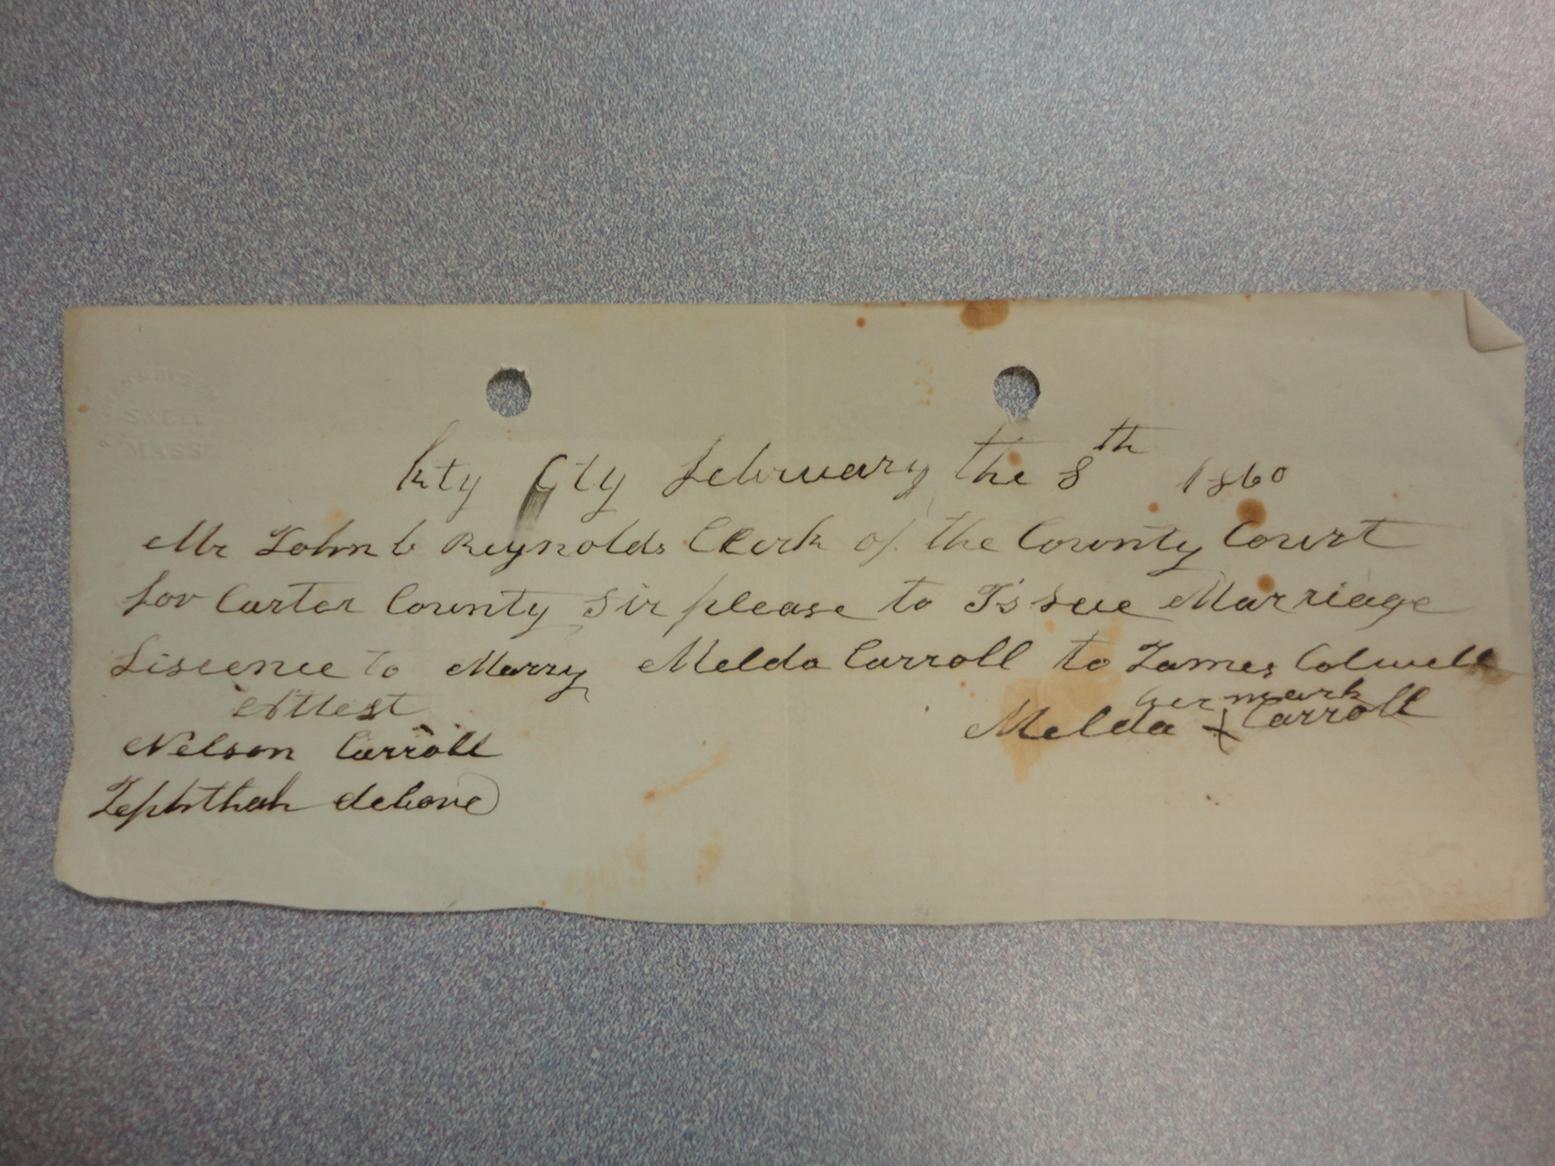 Kty Cty February the 8th 1860
Mr John C Reynolds Clerk of the County Court
for Carter County Sir please to Issue Marriage
Liscence to Marry Melda Carroll to James Colwell
Attest
her mark
Melda X Carroll
Nelson Carroll
Jephthah debone
MASS